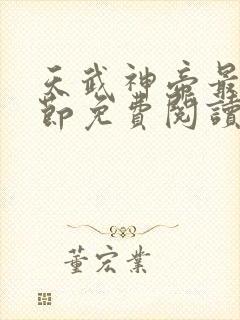 天武神帝最
節免費閱讀
董宏業